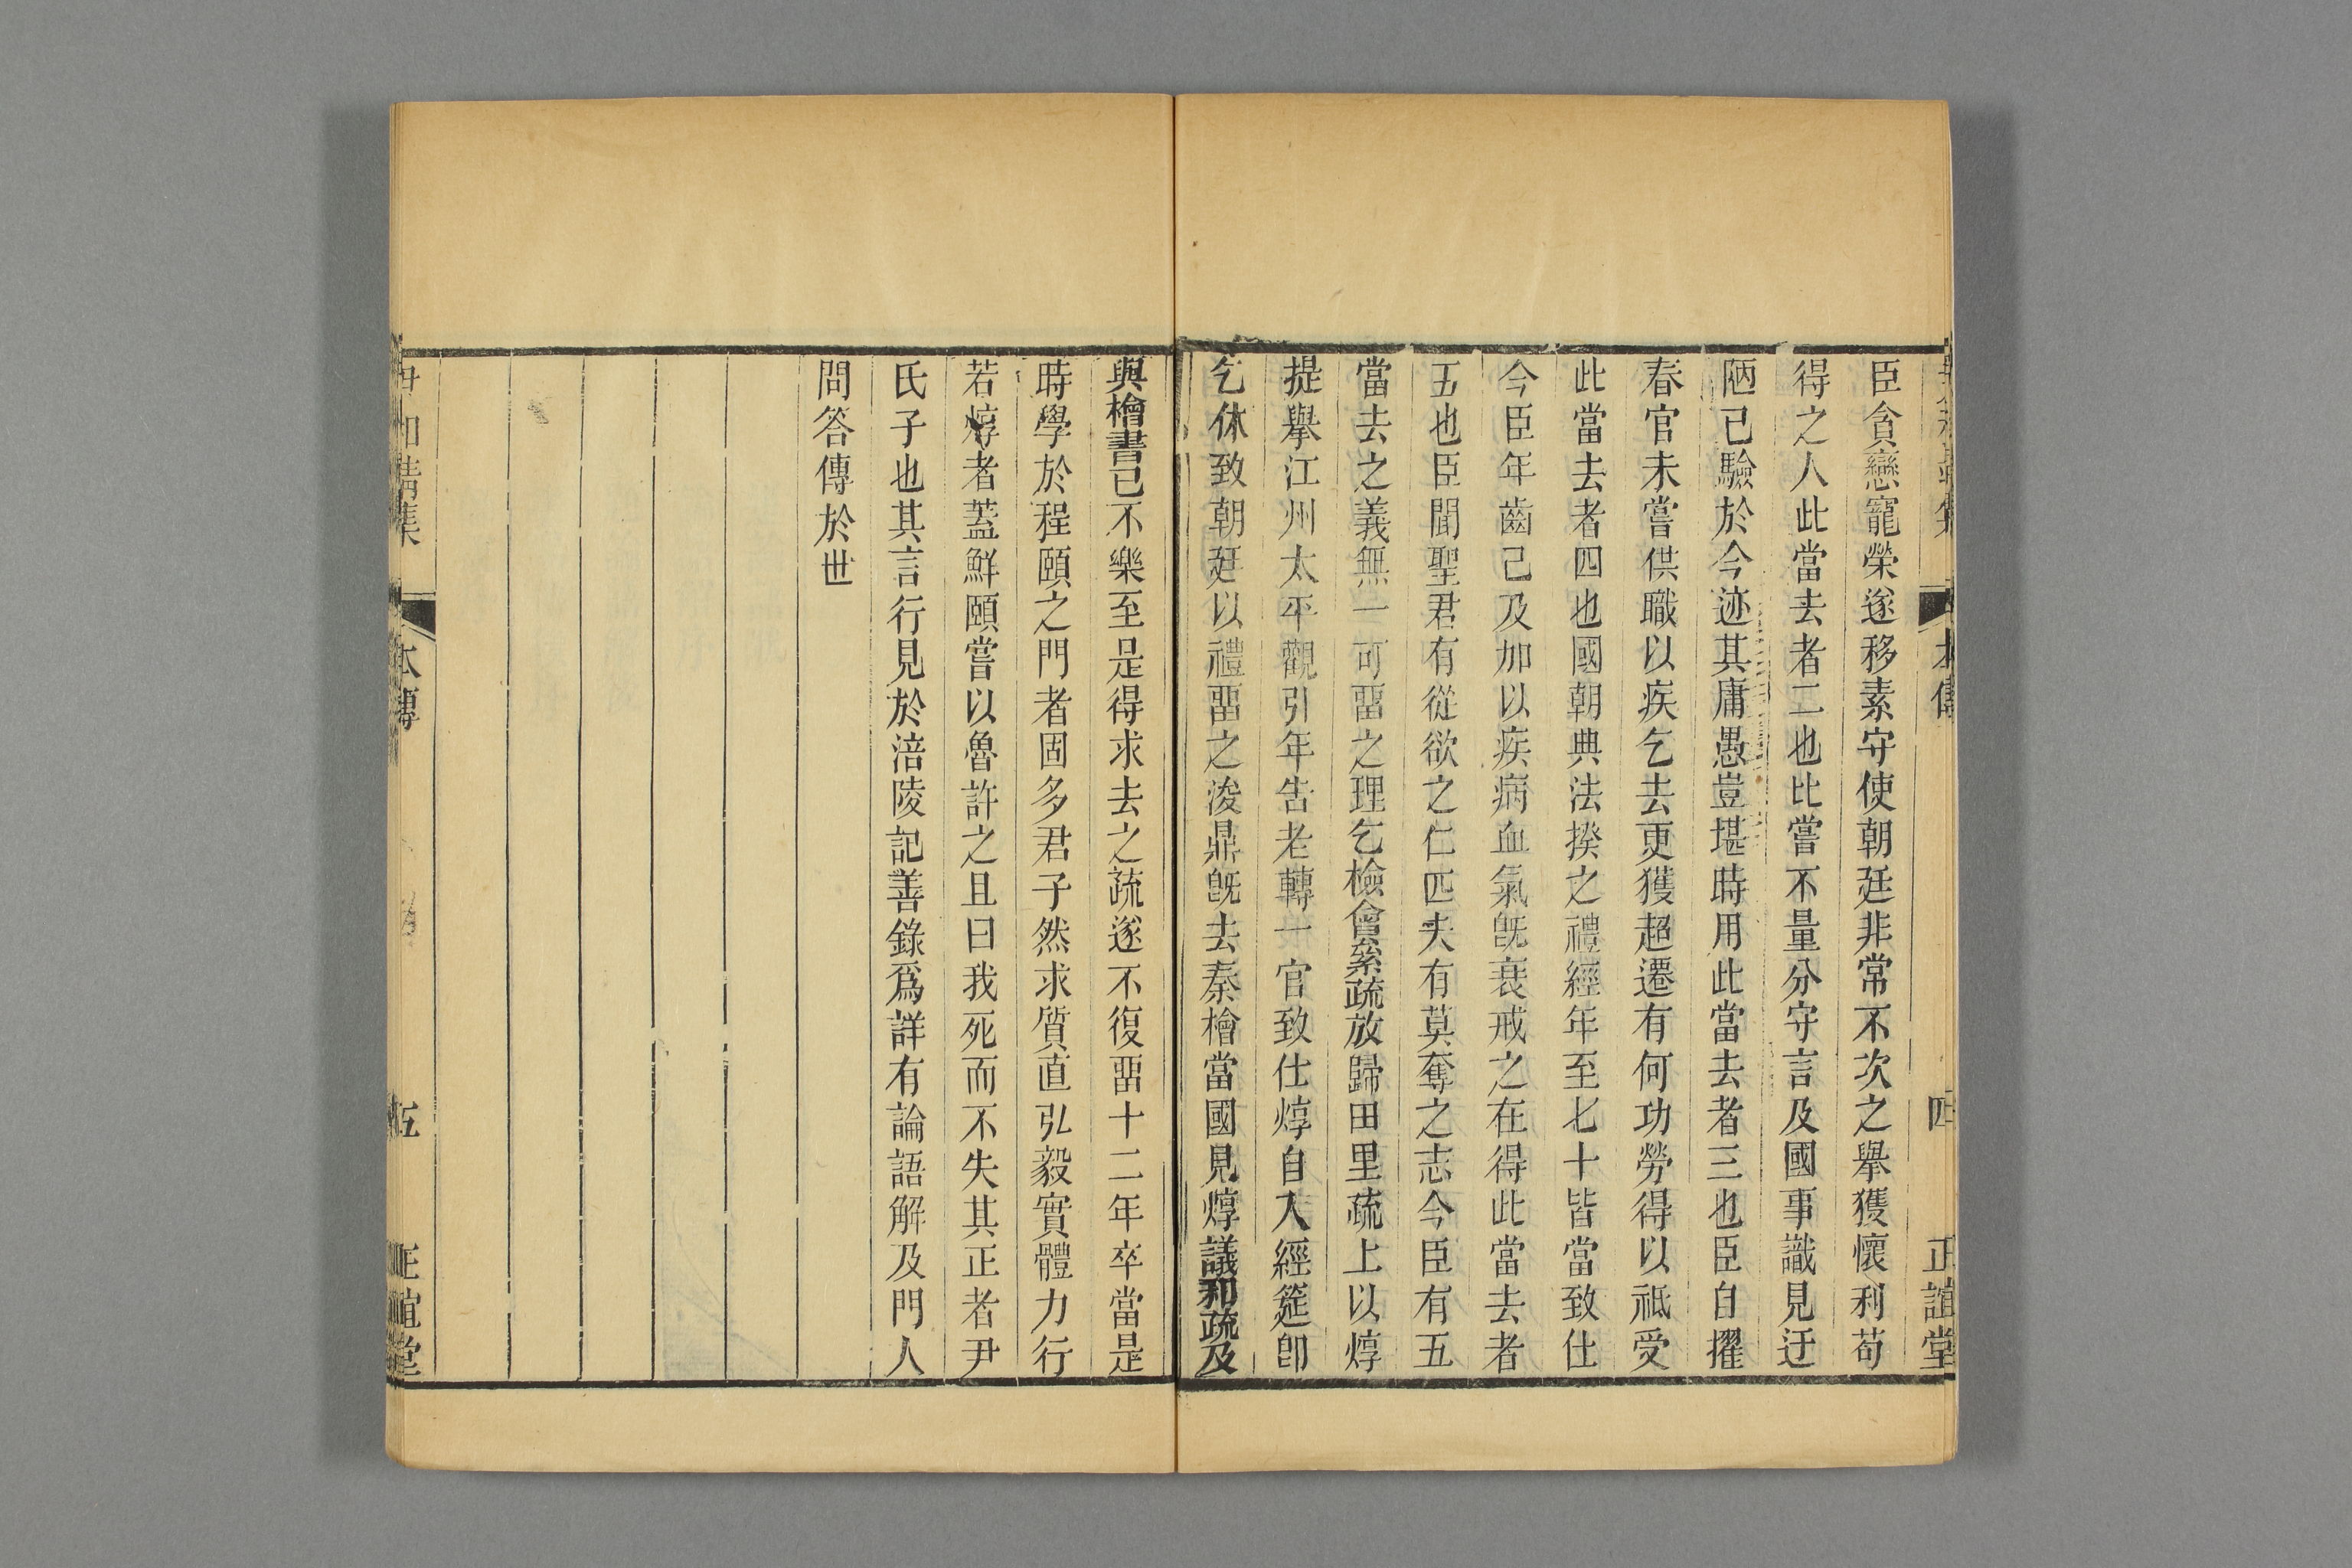 臣貪戀寵榮遂移素守使朝廷非常不次之舉獲懷利苟
得之人此當去者二也比嘗不量分守言及國事識見迂
陋已驗於今迹其庸愚豈堪時用此當去者三也臣自擢
春官未嘗供職以疾乞去更獲超遷有何功勞得以祗受
此當去者四也國朝典法揆之禮經年至七十皆當致仕
今臣年齒己及加以疾病血氣旣衰戒之在得此當去者
五也臣聞聖君有從欲之仁匹夫有莫奪之志今臣有五
當去之義無一可畱之理乞檢會累疏放歸田里疏上以焞
提舉江州太平觀引年告老轉一官致仕焞自入經筵卽
乞休致朝廷以禮畱之浚鼎旣去秦檜當國見焞議和疏及
與檜書已不樂至是得求去之疏遂不復畱十二年卒當是
時學於程頤之門者固多君子然求質直弘毅實體力行
若焞者蓋鮮頤嘗以魯許之且曰我死而不失其正者尹
氏子也其言行見於涪陵記善錄爲詳有論語解及門人
問答傳於世
尹和靖集 本傳 五 正誼堂
本傳 四 正誼堂